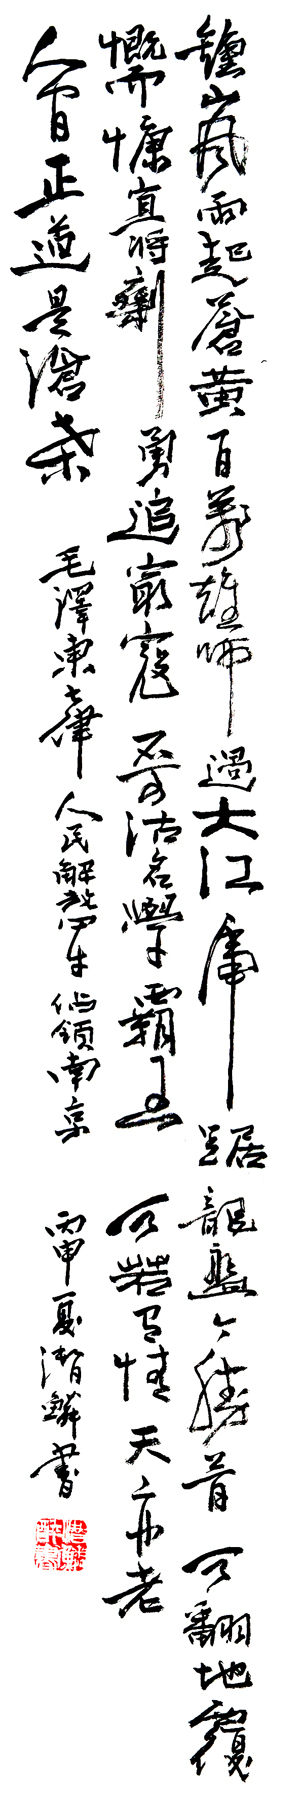 鍾山風雨起蒼黃百萬雄師過大江虎踞龍盤今勝昔天翻地覆
慨而慷宜將剩勇追窮寇不可沽名學霸王天若有情天亦老
人間正道是滄桑 毛澤東七律 人民解放軍佔領南京 丙申夏潛鱗書